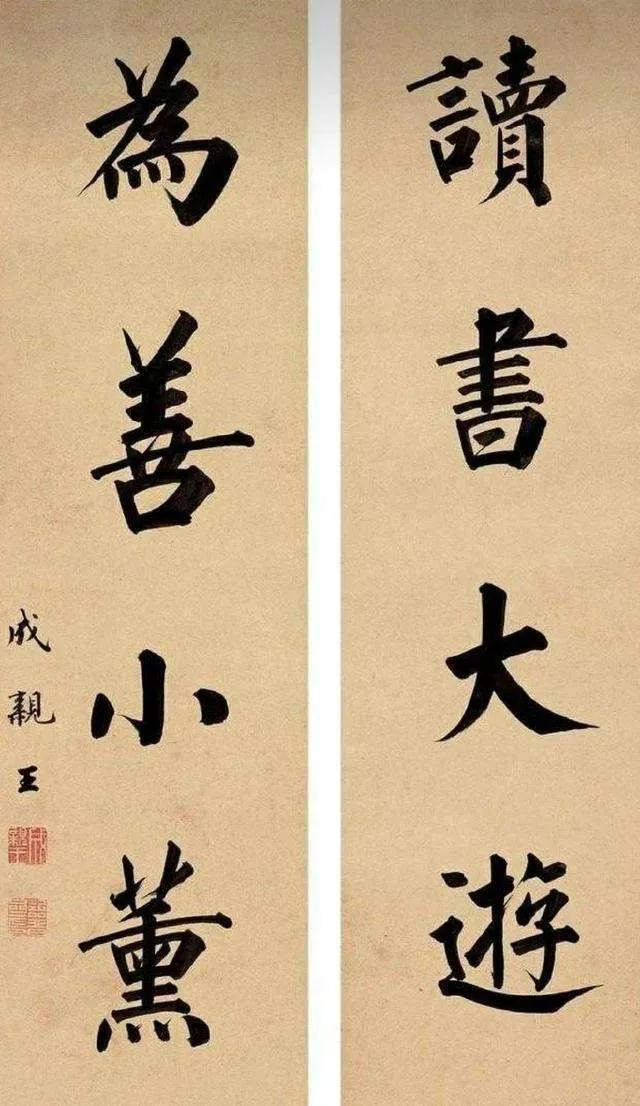 讀書大遊
為善小薰
成親王